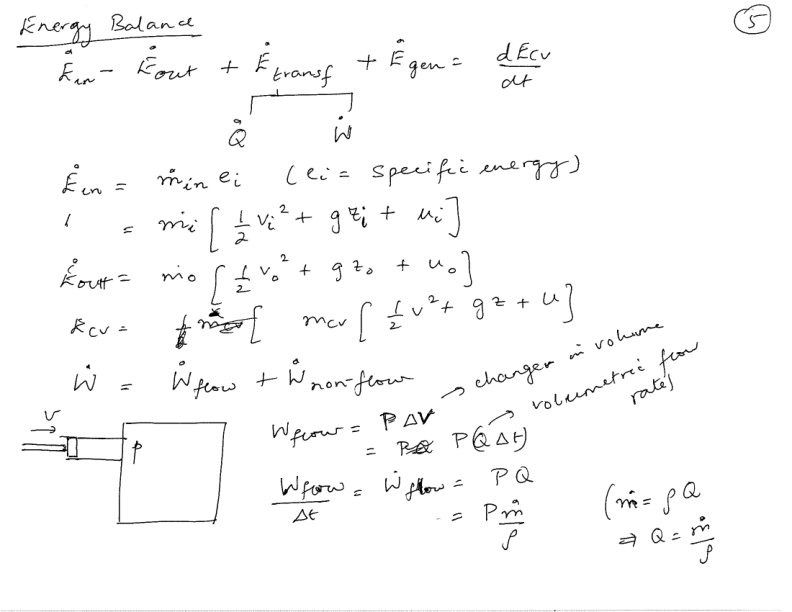 Energy Balance
5
Ėin - Ėout + Ėtransf + Ėgen = dEcv/dt
Q̇ Ẇ
Ėin = ṁin ei (ei = specific energy)
= ṁi [ 1/2 vi² + g zi + ui ]
Ėout = ṁo [ 1/2 vo² + g zo + uo ]
Ecv = mcv [ 1/2 v² + g z + u ]
Ẇ = Ẇflow + Ẇnon-flow
Wflow = P ΔV → changer in volume
= P(Q Δt) → volumetric flow rate)
v
P
Wflow/Δt = Ẇflow = P Q
= P ṁ/ρ
(ṁ = ρ Q
⇒ Q = ṁ/ρ